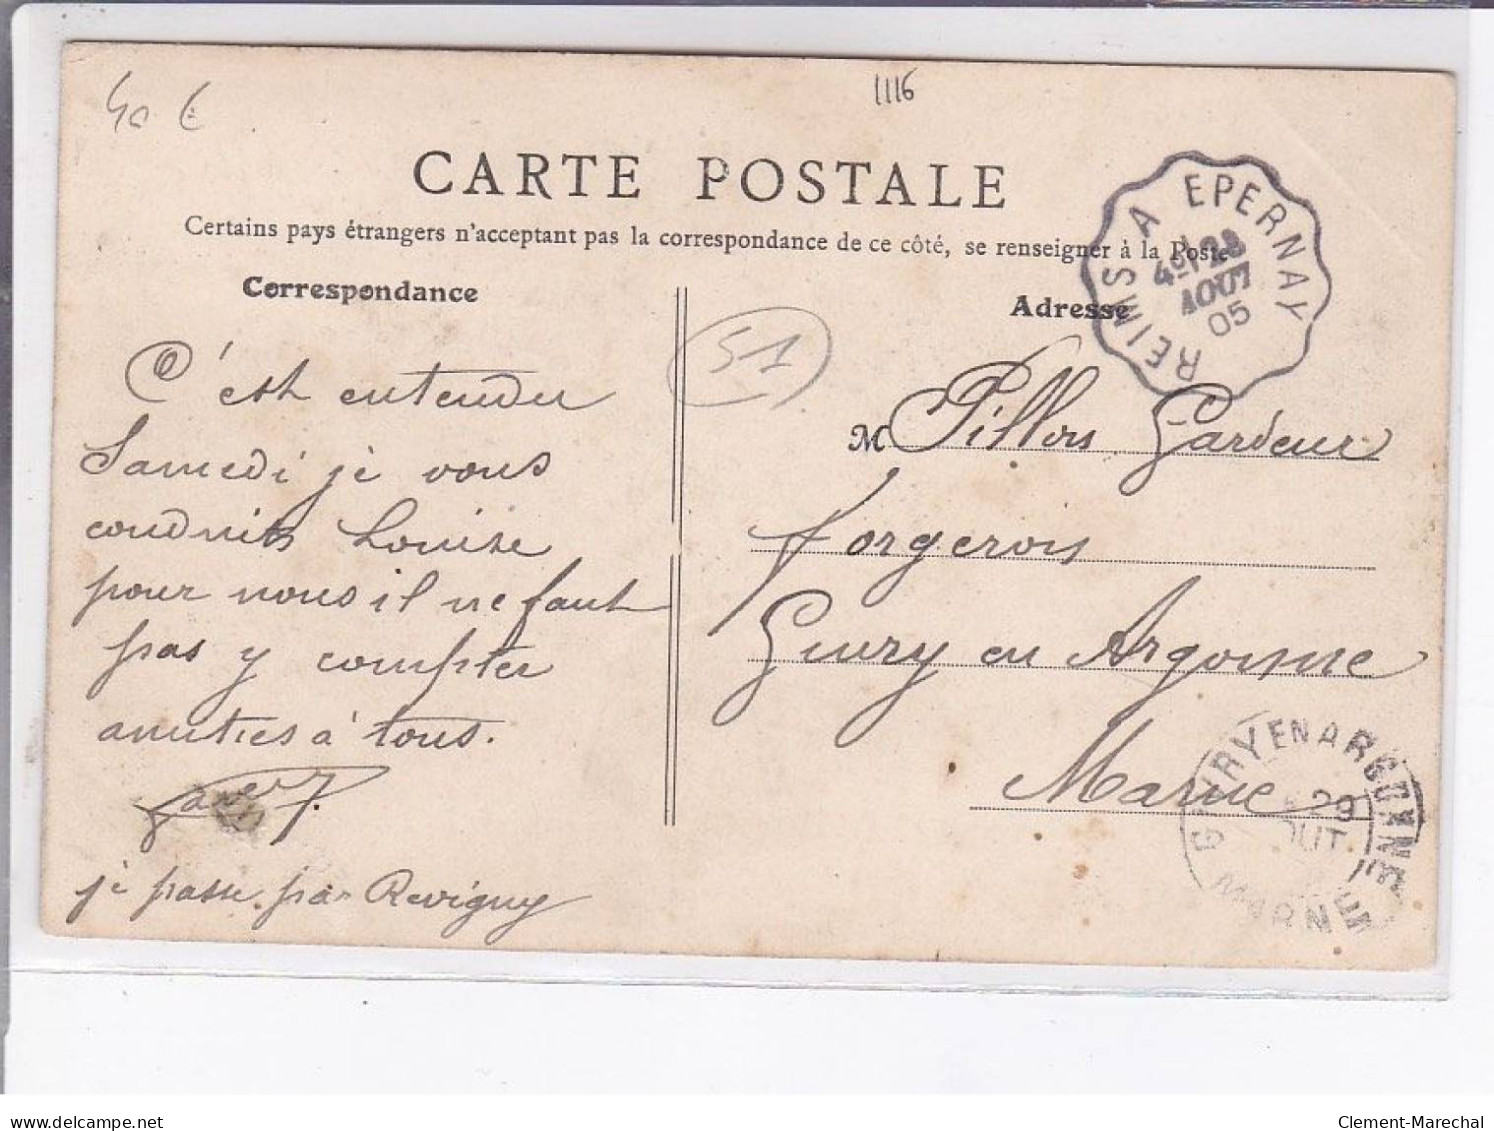 40 €
1116
CARTE POSTALE
Certains pays étrangers n'acceptant pas la correspondance de ce côté, se renseigner à la Poste
Correspondance
Adresse
REIMS A EPERNAY
28
AOUT
05
51
C'est entendu
Samedi je vous
conduits Louise
pour nous il ne faut
pas y compter
amities à tous.
je passe par Revigny
M Pillois Gardeur
Forgerois
Givry en Argonne
Marne
GIVRY EN ARGONNE
29
OUT
MARNE
delcampe.net
Clement-Marechal